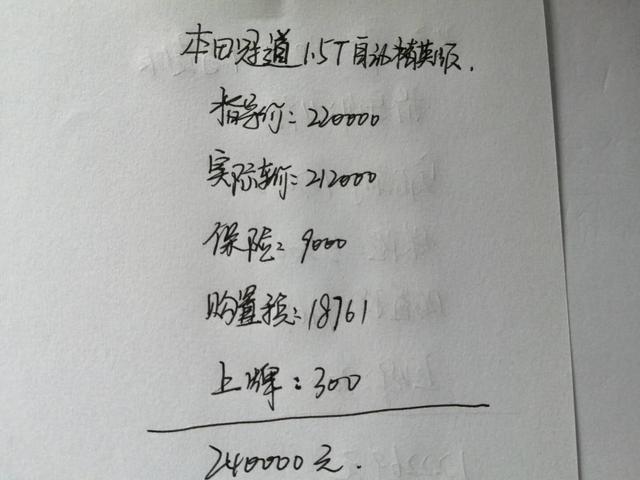 本田冠道1.5T自动精英版.
指导价:220000
实际车价:212000
保险:9000
购置税:18761
上牌:300
240000元.